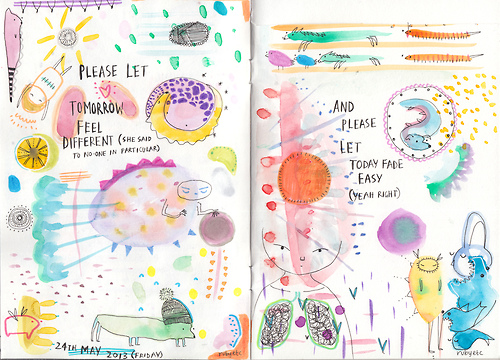 PLEASE LET
TOMORROW
FEEL
DIFFERENT (SHE SAID
TO NO-ONE IN PARTICULAR)
24TH MAY
2013 (FRIDAY)
rubyetc
AND
PLEASE
LET
TODAY FADE
EASY
(YEAH RIGHT)
rubyetc